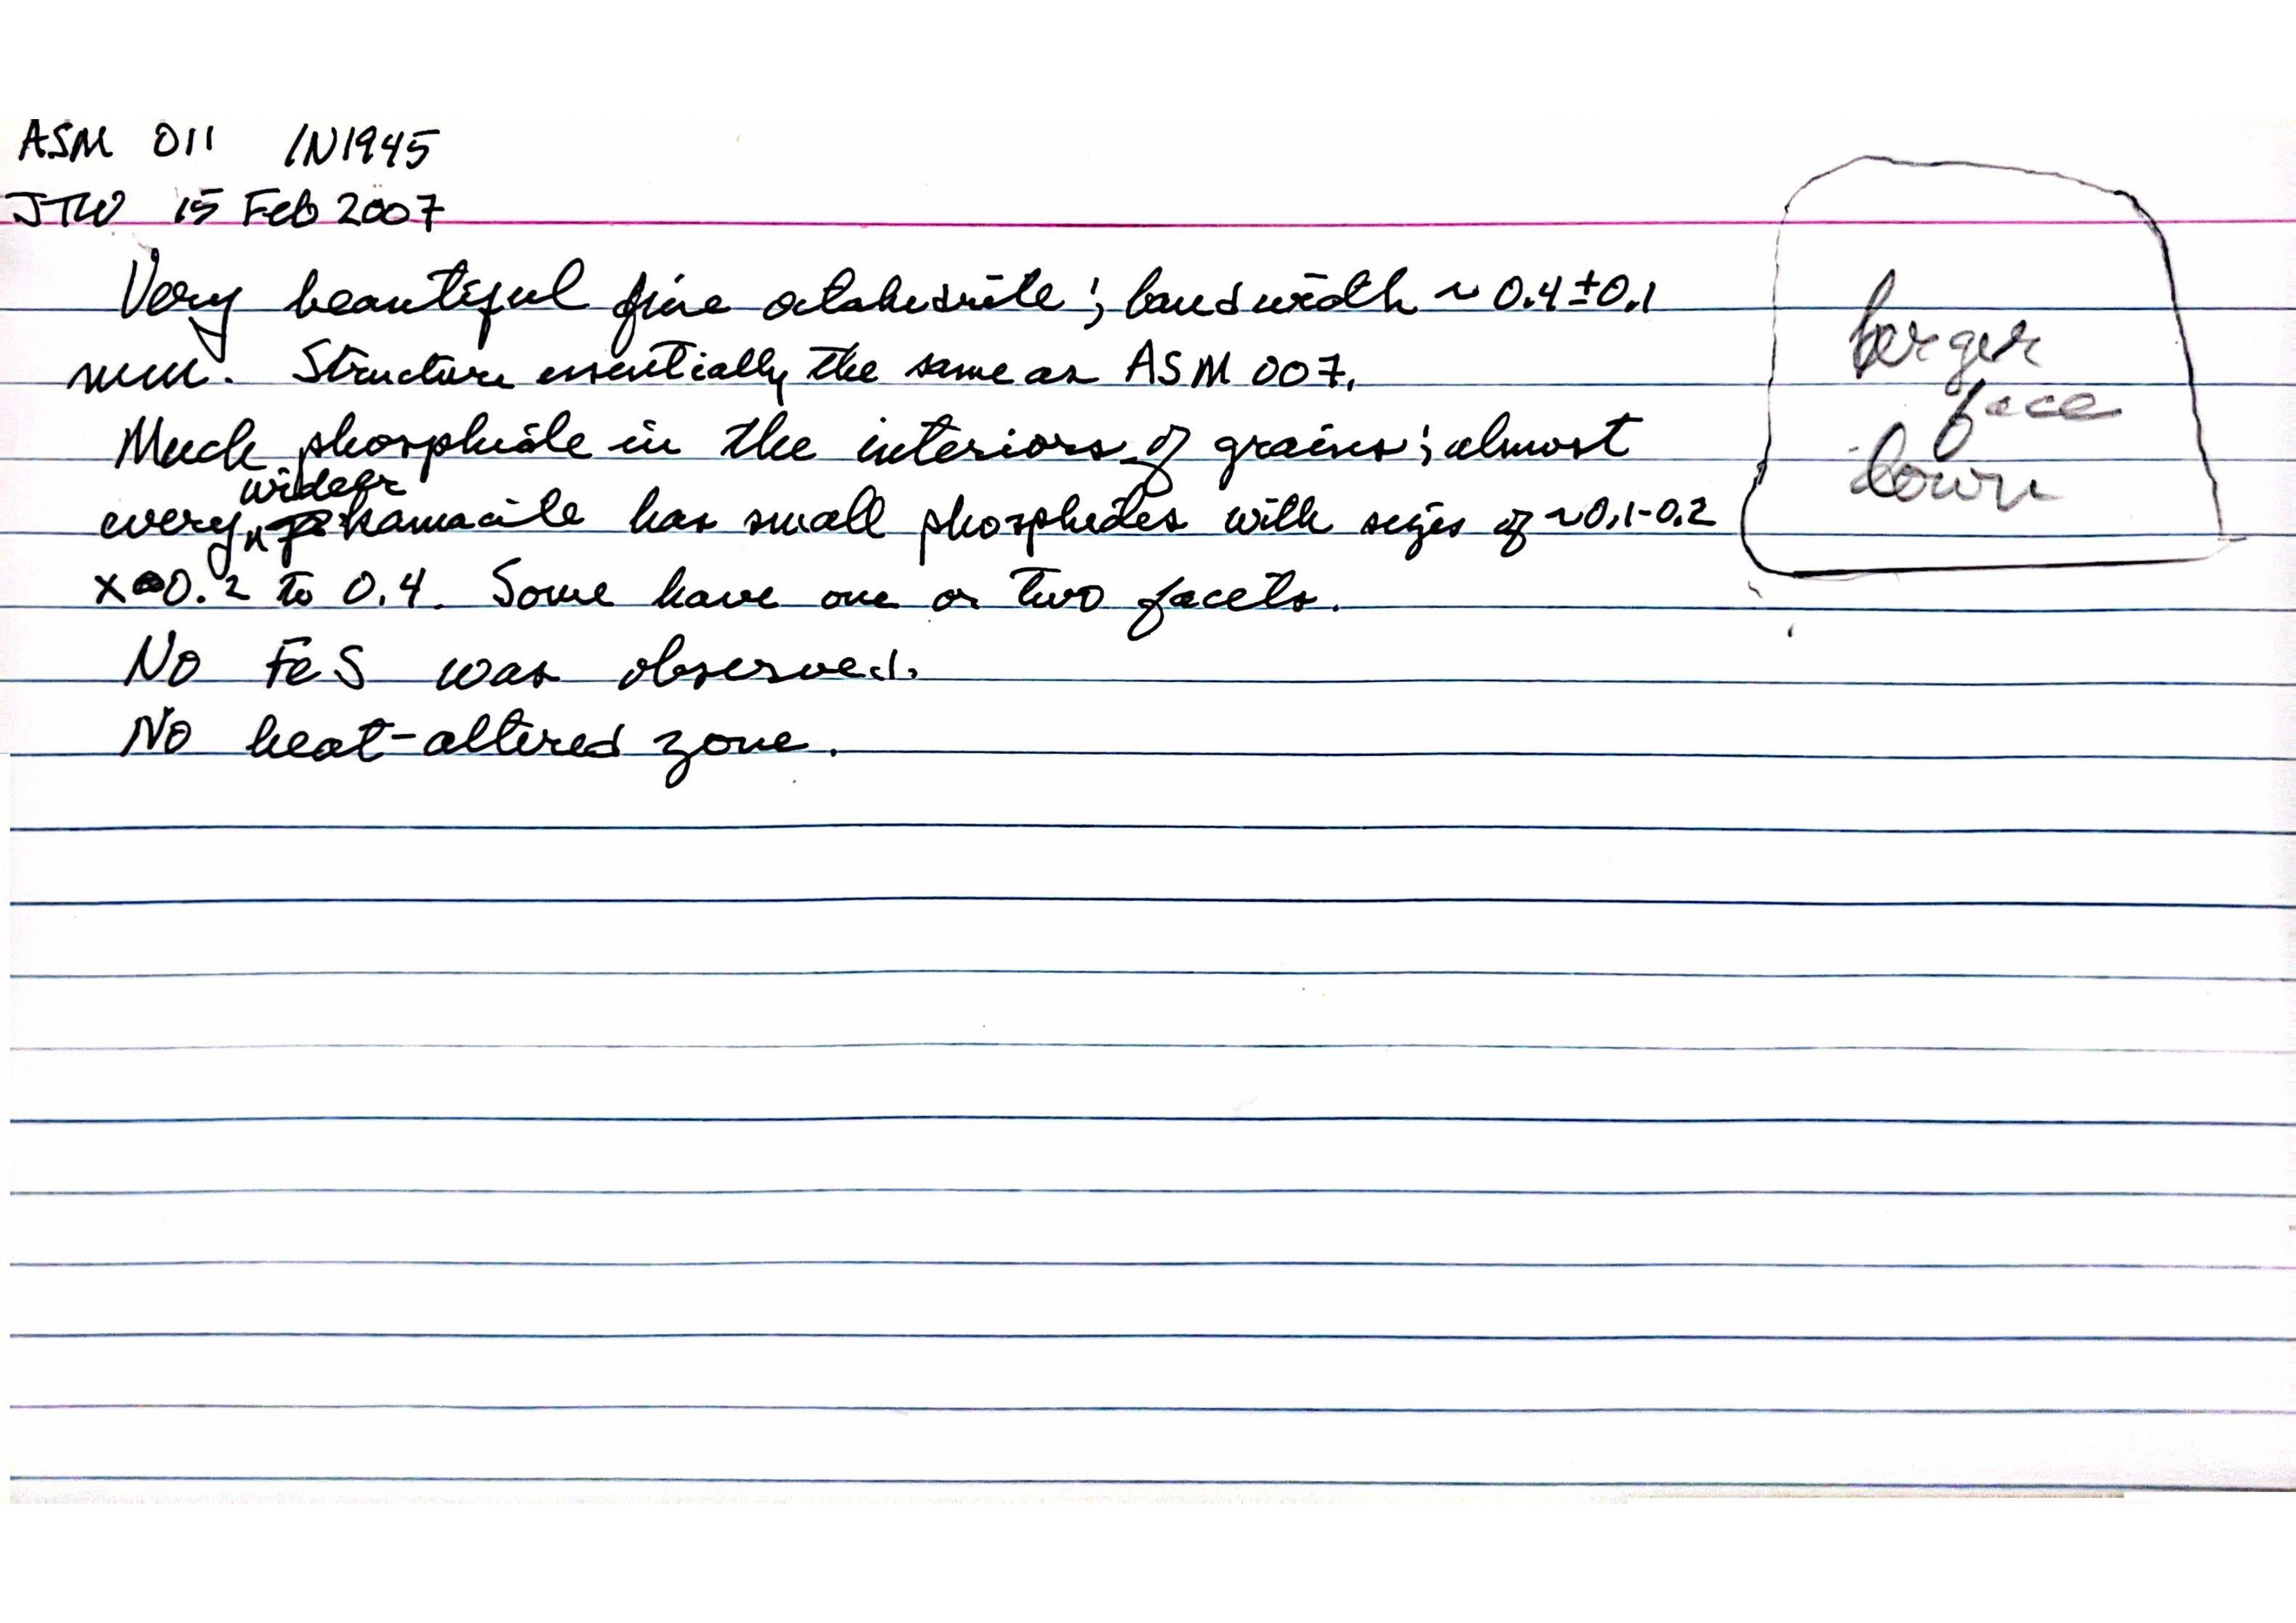 ASM 011 IN1945
JTW 15 Feb 2007
Very beautiful fine octahedrite; bandwidth ~ 0.4±0.1
mm. Structure essentially the same as ASM 007.
Much phosphide in the interiors of grains; almost
every wider kamacite has small phosphides with sizes of ~0.1-0.2
x 0.2 to 0.4. Some have one or two facets.
No FeS was observed.
No heat-altered zone.
larger
face
down